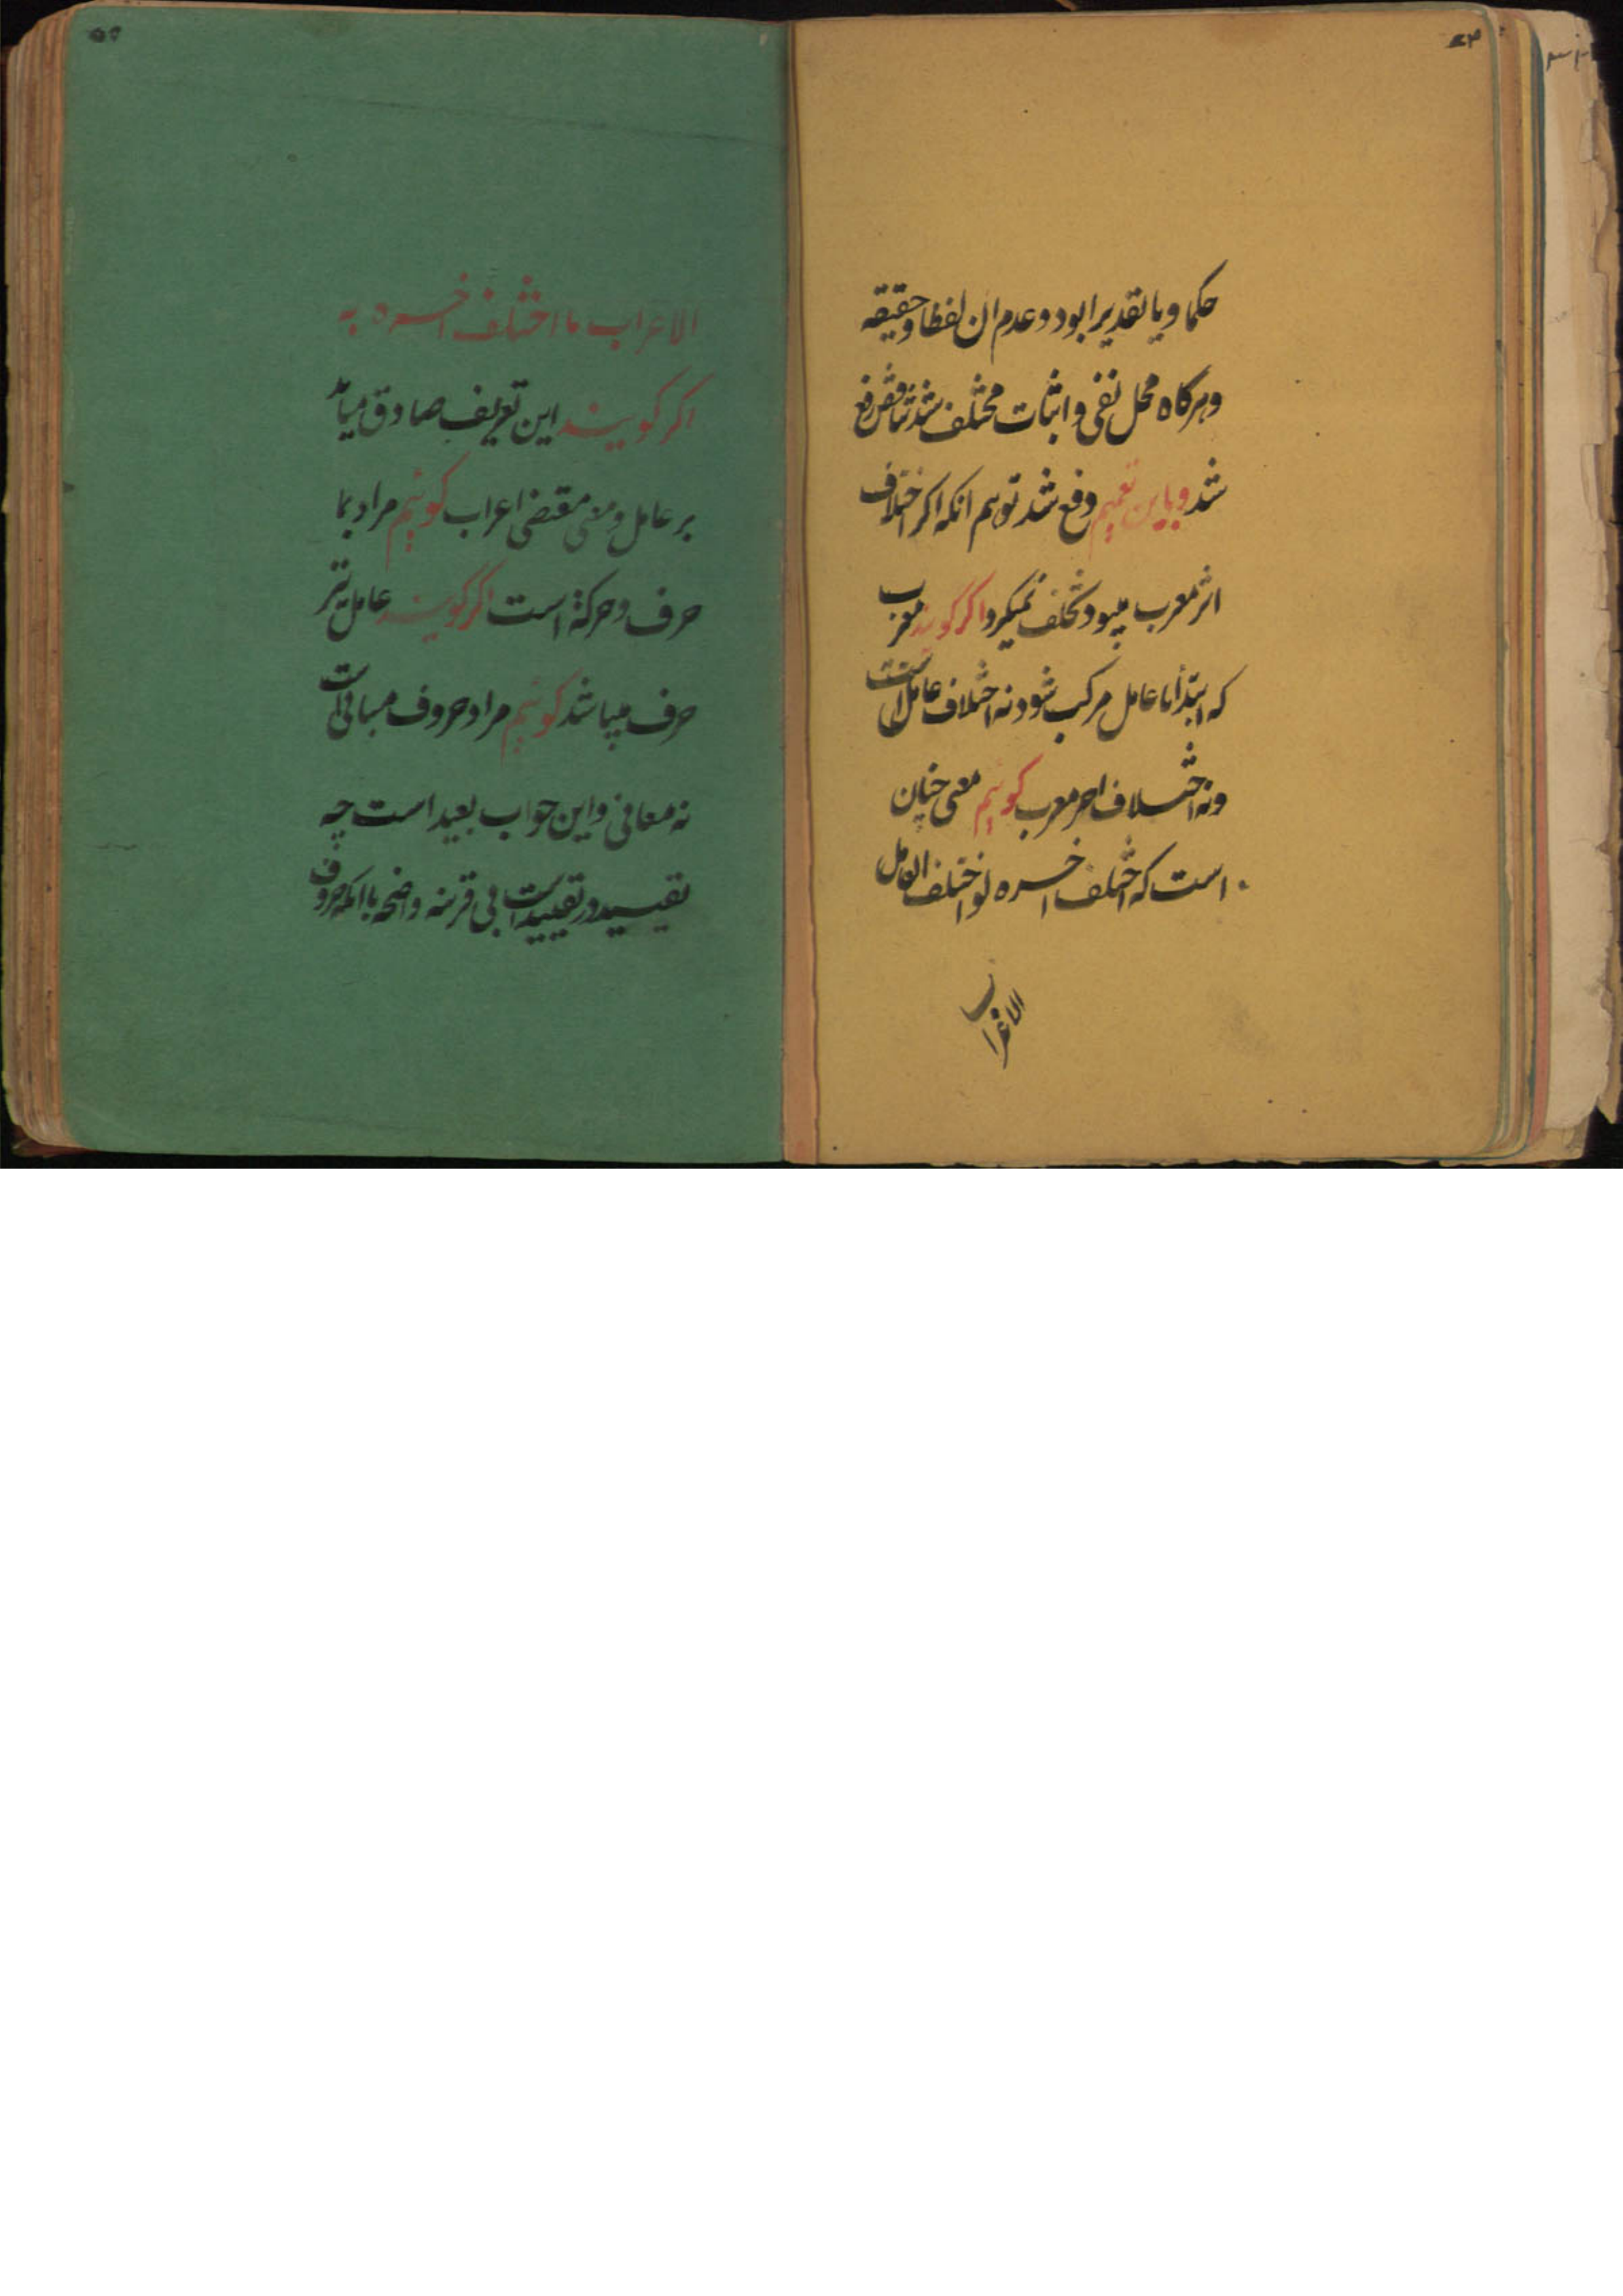 حکما و یا تقدیرا بود و عدم ان لفظا و حقیقه
و هرکاه محل نفی و اثبات مختلف شد تناقض رفع
شد و باین تعمیم دفع شد توهم انکه اکر اختلاف
اثر معرب میبود تخلف نمیکرد اکر کویند معرب
که ابتدأ با عامل مرکب شود نه اختلاف عامل است
و نه اختلاف اخر معرب کوئیم معنی چنان
است که اختلف اخره لو اختلف العامل
الاعراب
الاعراب ما اختلف اخره به
اکر کویند این تعریف صادق میاید
بر عامل و معنی مقتضی اعراب کوئیم مراد بما
حرف و حرکة است اکر کویند عامل نیز
حرف میباشد کوئیم مراد حروف مبانی است
نه معانی و این جواب بعید است چه
تقیید در تقیید است بی قرینه واضحه با انکه حروف